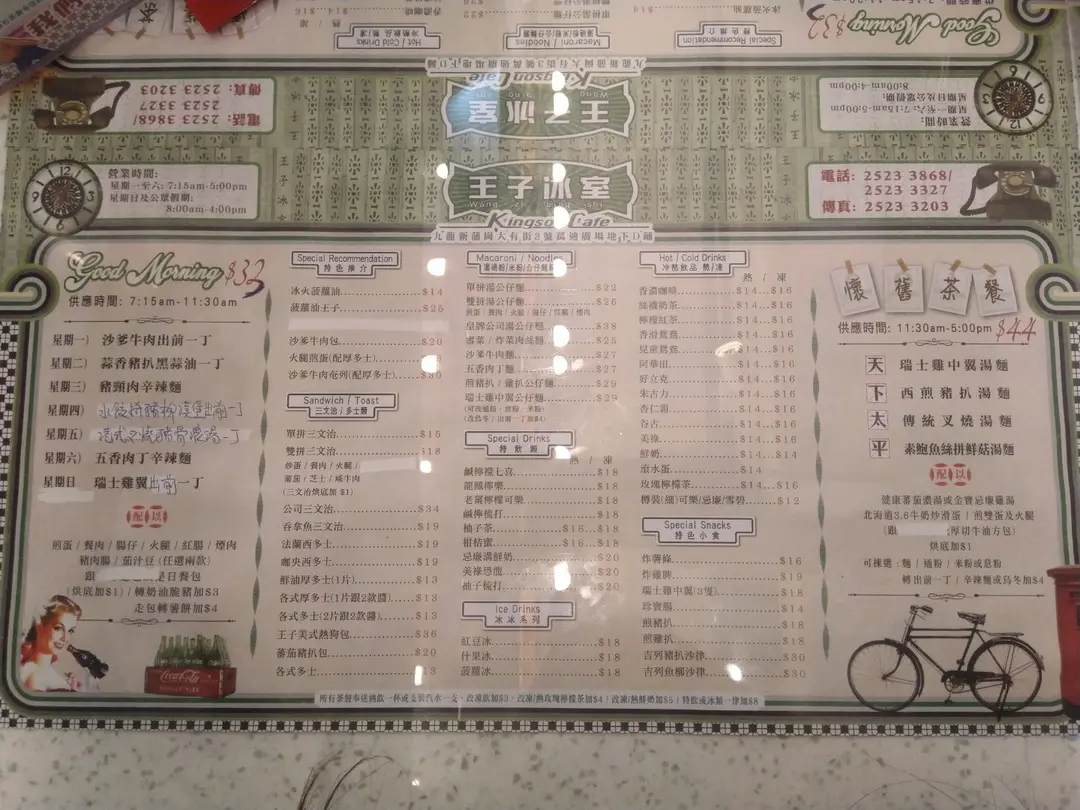 王子冰室
Wang zi bing shi
Kingson Cafe
九龍新蒲崗大有街3號萬迪廣場地下D鋪
營業時間:
星期一至六: 7:15am-5:00pm
星期日及公眾假期:
8:00am-4:00pm
電話: 2523 3868/
2523 3327
傳真: 2523 3203
Good Morning $32
供應時間: 7:15am-11:30am
星期一) 沙爹牛肉出前一丁
星期二) 蒜香豬扒黑蒜油一丁
星期三) 豬頸肉辛辣麵
星期四)
星期五)
星期六) 五香肉丁辛辣麵
星期日 瑞士雞翼出前一丁
配以
煎蛋 / 餐肉 / 腸仔 / 火腿 / 紅腸 / 煙肉
豬肉腸 / 茄汁豆 (任選兩款)
跟 是日餐包
(烘底加$1) / 轉奶油脆豬加$3
走包轉薯餅加$4
Coca-Cola
Special Recommendation
特色推介
冰火菠蘿油 $14
菠蘿油王子 $25
沙爹牛肉包 $20
火腿煎蛋(配厚多士)
沙爹牛肉奄列(配厚多士) $30
Sandwich / Toast
三文治/多士類
單拼三文治 $15
雙拼三文治
炒蛋 / 餐肉 / 火腿 /
蕃茄 / 芝士 / 咸牛肉
(三文治烘底加 $1)
公司三文治 $34
吞拿魚三文治 $19
法蘭西多士 $19
咖央西多士 $19
鮮油厚多士(1片) $13
各式厚多士(1片跟2款醬) $13
各式多士(2片跟2款醬) $13
王子美式熱狗包 $36
蕃茄豬扒包 $20
各式多士 $13
Macaroni / Noodles
湯通粉/米粉/公仔麵類
單拼湯公仔麵 $22
雙拼湯公仔麵 $26
煎蛋 / 餐肉 / 火腿 / 腸仔 / 紅腸 / 煙肉
皇牌公司湯公仔麵 $38
雪菜 / 炸菜肉絲麵 $25
沙爹牛肉麵 $27
五香肉丁麵 $27
煎豬扒 / 雞扒公仔麵 $29
瑞士雞中翼公仔麵 $29
(可改通粉、意粉、米粉)
(改烏冬 / 出前一丁加$4)
Special Drinks
特飲類
熱 / 凍
鹹檸檬七喜 $18
龍鳳檸樂 $18
老薑檸檬可樂 $18
鹹檸梳打 $18
柚子茶 $16...$18
柑桔蜜 $16...$18
忌廉溝鮮奶 $20
美祿恐龍 $20
柚子梳打 $20
Ice Drinks
冰冰系列
紅豆冰 $18
什果冰 $18
菠蘿冰 $18
Hot / Cold Drinks
冷熱飲品 熱/凍
熱 / 凍
香濃咖啡 $14...$16
絲襪奶茶 $14...$16
檸檬紅茶 $14...$16
香滑鴛鴦 $14...$16
兒童鴛鴦 $14...$16
阿華田 $14...$16
好立克 $14...$16
朱古力 $14...$16
杏仁霜 $14...$16
谷古 $14...$16
美祿 $14...$16
鮮奶 $14...$16
滾水蛋 $14
玫瑰檸檬茶 $14...$16
樽裝(細)可樂/忌廉/雪碧 $12
Special Snacks
特色小食
炸薯條 $16
炸雞脾 $19
瑞士雞中翼(3隻) $18
珍寶腸 $14
煎豬扒 $18
煎雞扒 $18
吉列豬扒沙律 $30
吉列魚柳沙律 $30
懷舊茶餐
供應時間: 11:30am-5:00pm $44
天 瑞士雞中翼湯麵
下 西煎豬扒湯麵
太 傳統叉燒湯麵
平 素鮑魚絲拼鮮菇湯麵
配以
健康蕃茄濃湯或金寶忌廉雞湯
北海道3.6牛奶炒滑蛋 / 煎雙蛋及火腿
(跟 厚切牛油方包)
烘底加$1
可揀選: 麵 / 通粉 / 米粉或意粉
轉出前一丁 / 辛辣麵或烏冬加$4
所有茶餐奉送熱飲一杯或支裝汽水一支、改凍飲加$3，改凍/熱玫瑰檸檬茶加$4 / 改凍/熱鮮奶加$5 / 特飲或冰類一律加$8